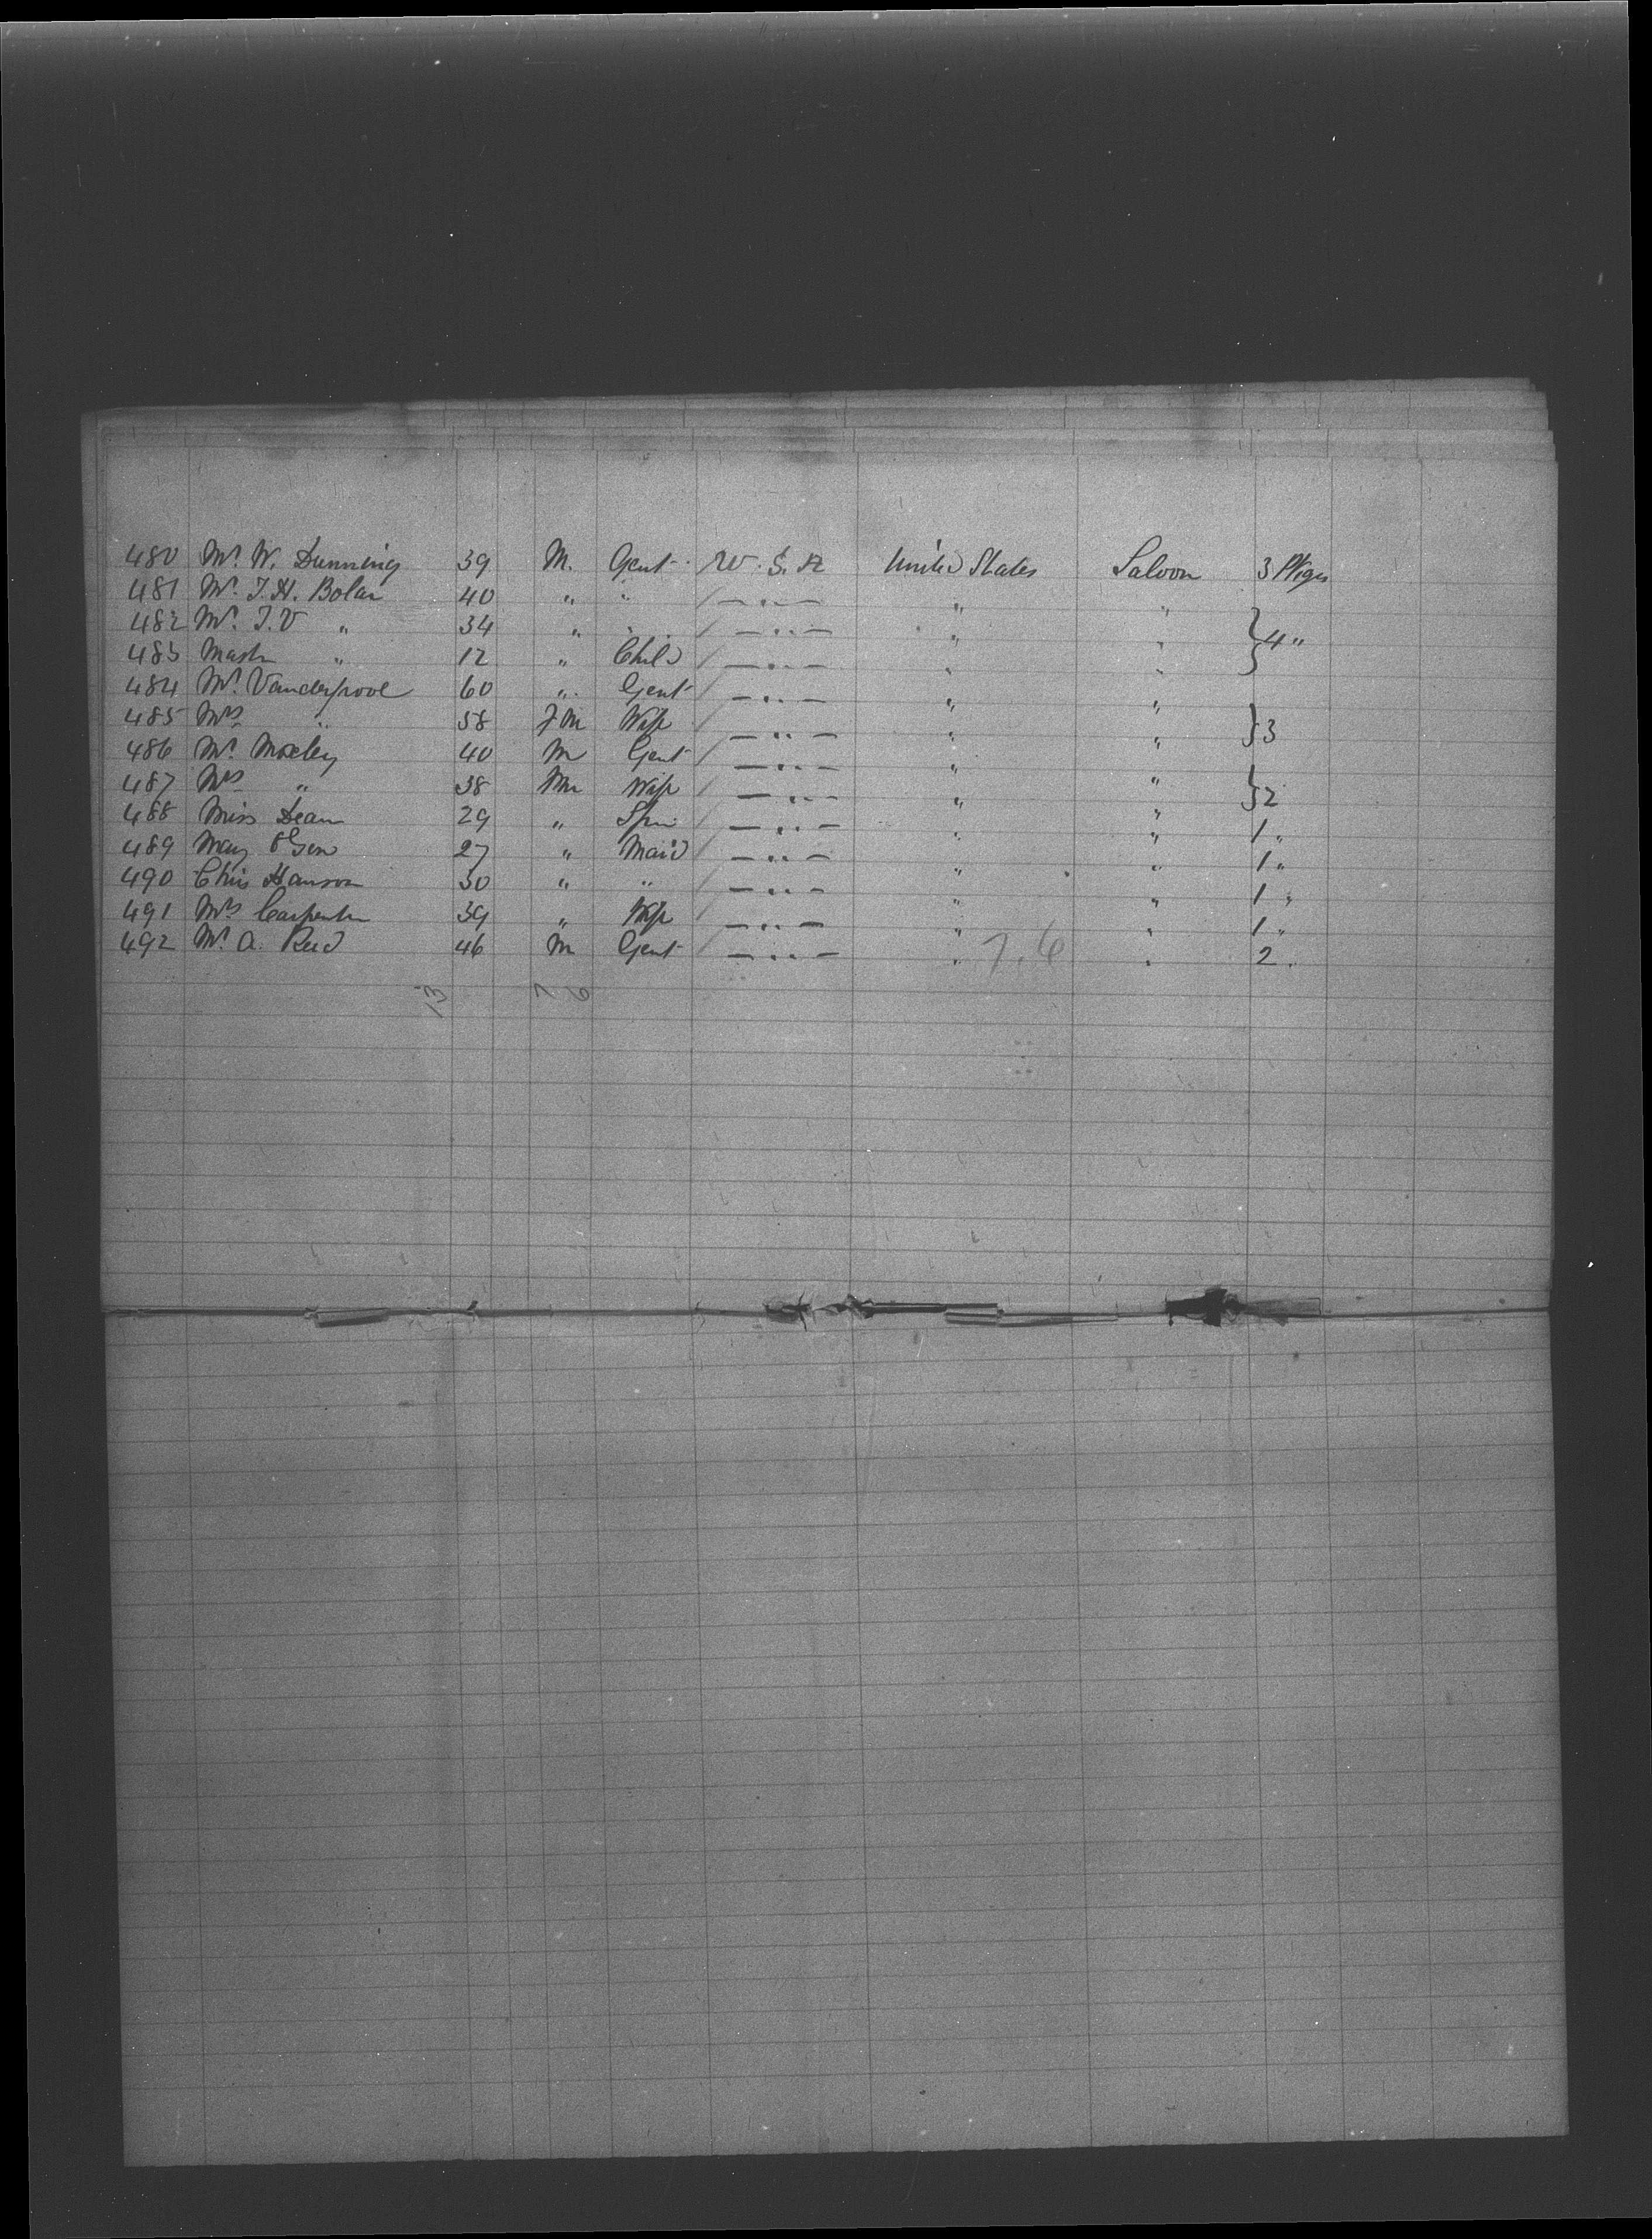 480 Mr. W. Dunning 39 M. Gent. U. S. A United States Saloon 3 Pkges
481 Mr. J. H. Bolan 40 " " / — " — " "
482 Mr. J. V " 34 " " / — " — " " } 4 "
483 Mastr " 12 " Child / — " — " "
484 Mr. Vanderpool 60 " Gent / — " — " "
485 Mrs " 58 F M Wife / — " — " " } 3
486 Mr. Moxley 40 M Gent / — " — " "
487 Mrs " 38 Wife / — " — " " } 2
488 Miss Dean 29 " Spin / — " — " " 1 "
489 Mary 27 " Maid / — " — " " 1 "
490 Chris Hanson 30 " " / — " — " " 1 "
491 Mrs Carpenter 39 " Wife / — " — " " 1 "
492 Mr. A. Reid 46 M Gent / — " — " 7.6 " 2 "
13 7 6